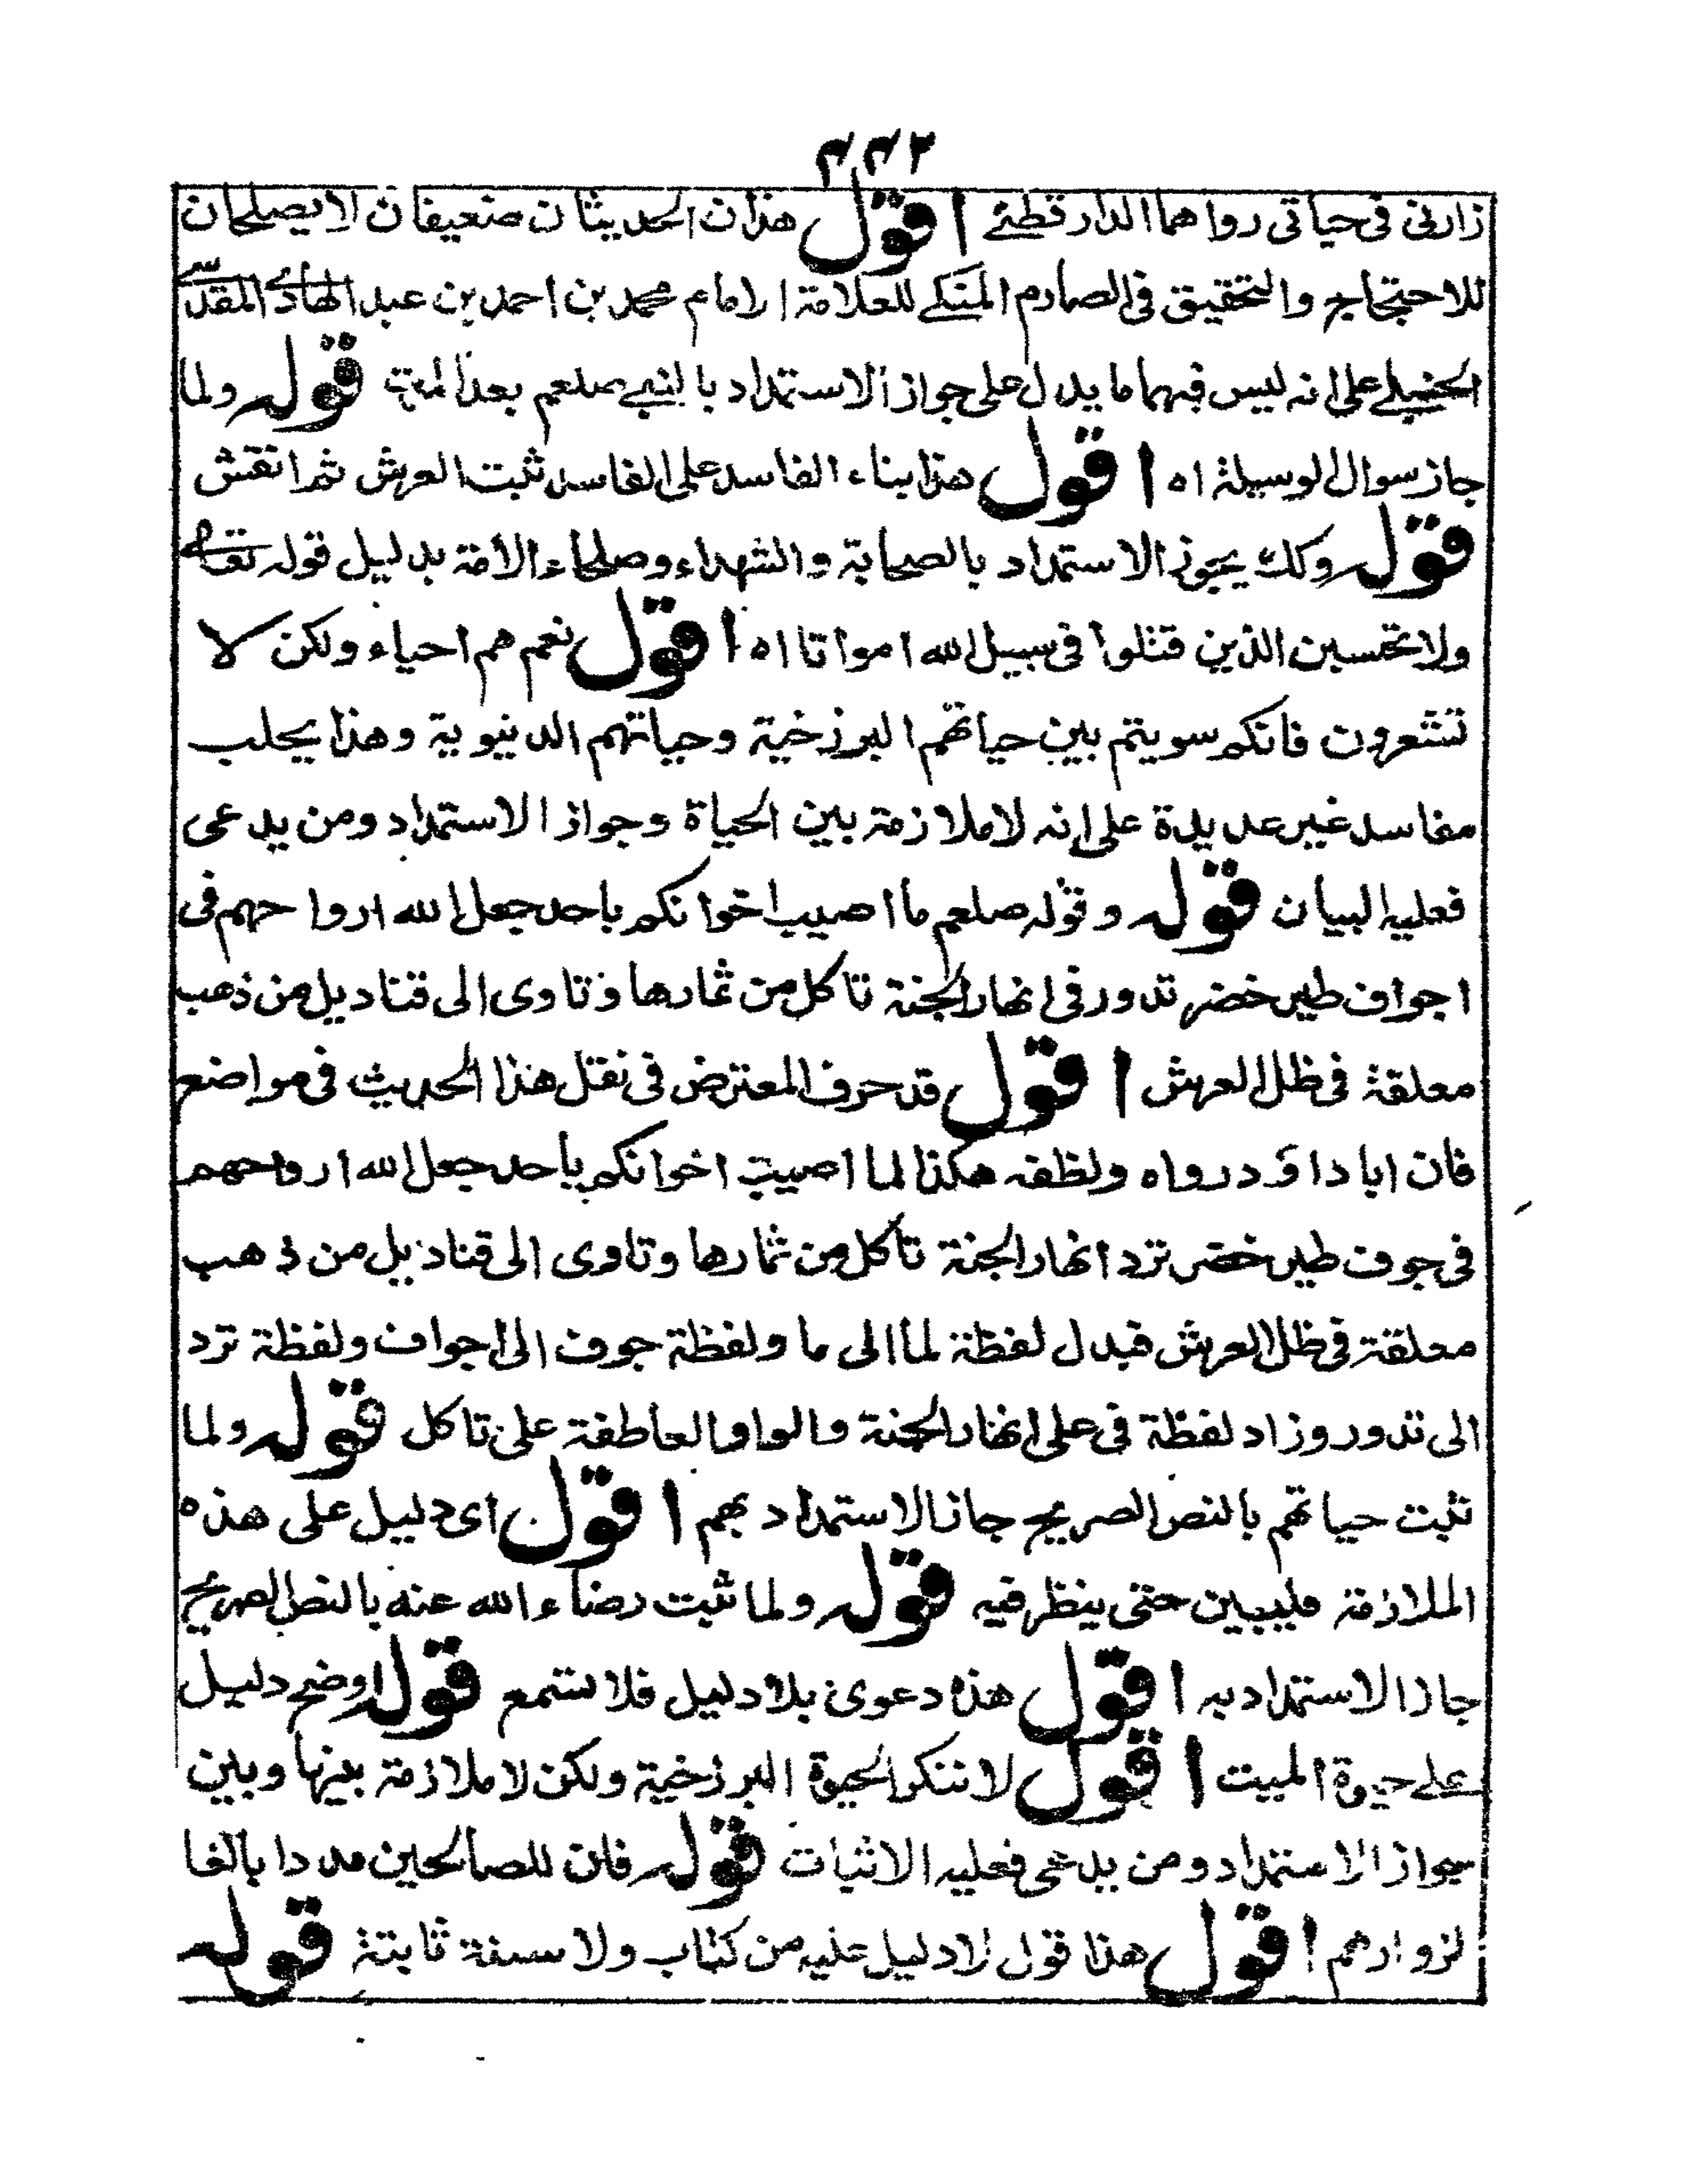 ٤٤٢
زارنی فی حیاتی رواهما الدار قطنے اقول هذان الحدیثان ضعیفان لا یصلحان
للاحتجاج والتحقیق فی الصارم المنکے للعلامة الامام محمد بن احمد بن عبد الهادے المقدسے
الحنبلے علی انه لیس فیهما ما یدل علی جواز الاستمداد بالنبے صلعم بعد الموت قوله ولما
جاز سوال الوسیلة اه اقول هذا بناء الفاسد علی الفاسد ثبت العرش ثم انقش
قوله وکك یجوز الاستمداد بالصحابة والشهداء وصلحاء الأمة بدلیل قوله تعالے
ولا تحسبن الذین قتلوا فی سبیل الله امواتا اه اقول نعم هم احیاء ولکن لا
تشعرون فانکم سویتم بین حیاتهم البرزخیة وحیاتهم الدنیویة وهذا یجلب
مفاسد غیر عدیدة علی انه لا ملازمة بین الحیاة وجواز الاستمداد ومن یدعی
فعلیه البیان قوله وقوله صلعم ما اصیب اخوانکم باحد جعل الله ارواحهم فی
اجواف طیر خضر تدور فی انهار الجنة تاکل من ثمارها وتاوی الی قنادیل من ذهب
معلقة فی ظل العرش اقول قد حرف المعترض فی نقل هذا الحدیث فی مواضع
فان ابا داؤد رواه ولظفه هکذا لما اصیب اخوانکم باحد جعل الله ارواحهم
فی جوف طیر خضر ترد انهار الجنة تاکل من ثمارها وتاوی الی قنادیل من ذهب
معلقة فی ظل العرش فبدل لفظة لما الی ما ولفظة جوف الی اجواف ولفظة ترد
الی تدور وزاد لفظة فی علی انهار الجنة والواو العاطفة علی تاکل قوله ولما
ثبت حیاتهم بالنص الصریح جاز الاستمداد بهم اقول ای دلیل علی هذه
الملازمة فلیبین حتی ینظر فیه قوله ولما ثبت رضاء الله عنه بالنص الصریح
جاز الاستمداد به اقول هذه دعوی بلا دلیل فلا تستمع قوله اوضح دلیل
علے حیوة المیت اقول لا ننکر الحیوة البرزخیة ولکن لا ملازمة بینها وبین
جواز الاستمداد ومن یدعی فعلیه الاثبات قوله فان للصالحین مددا بالغا
لزوارهم اقول هذا قول لا دلیل علیه من کتاب ولا سنة ثابتة قوله